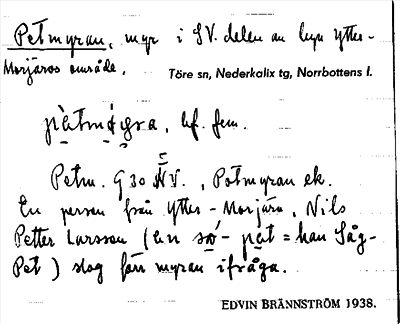 Petmyran, myr i SV. delen av byn Ytter-
Morjärvs område.
Töre sn, Nederkalix tg, Norrbottens l.
bf. fem.
Petm. G 30 NV., Potmyran ek.
En person från Ytter-Morjärv, Nils
Petter Larsson (en så´- pet = han Såg-
Pet) slog förr myran ifråga.
EDVIN BRÄNNSTRÖM 1938.